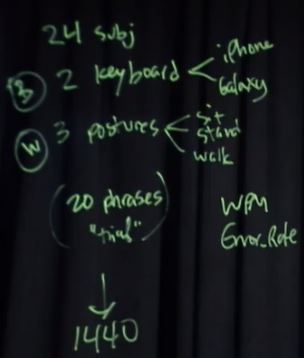 24 subj
B 2 keyboard < iPhone
Galaxy
W 3 postures < sit
stand
walk
(20 phrases)
"trial"
WPM
Error_Rate
↓
1440